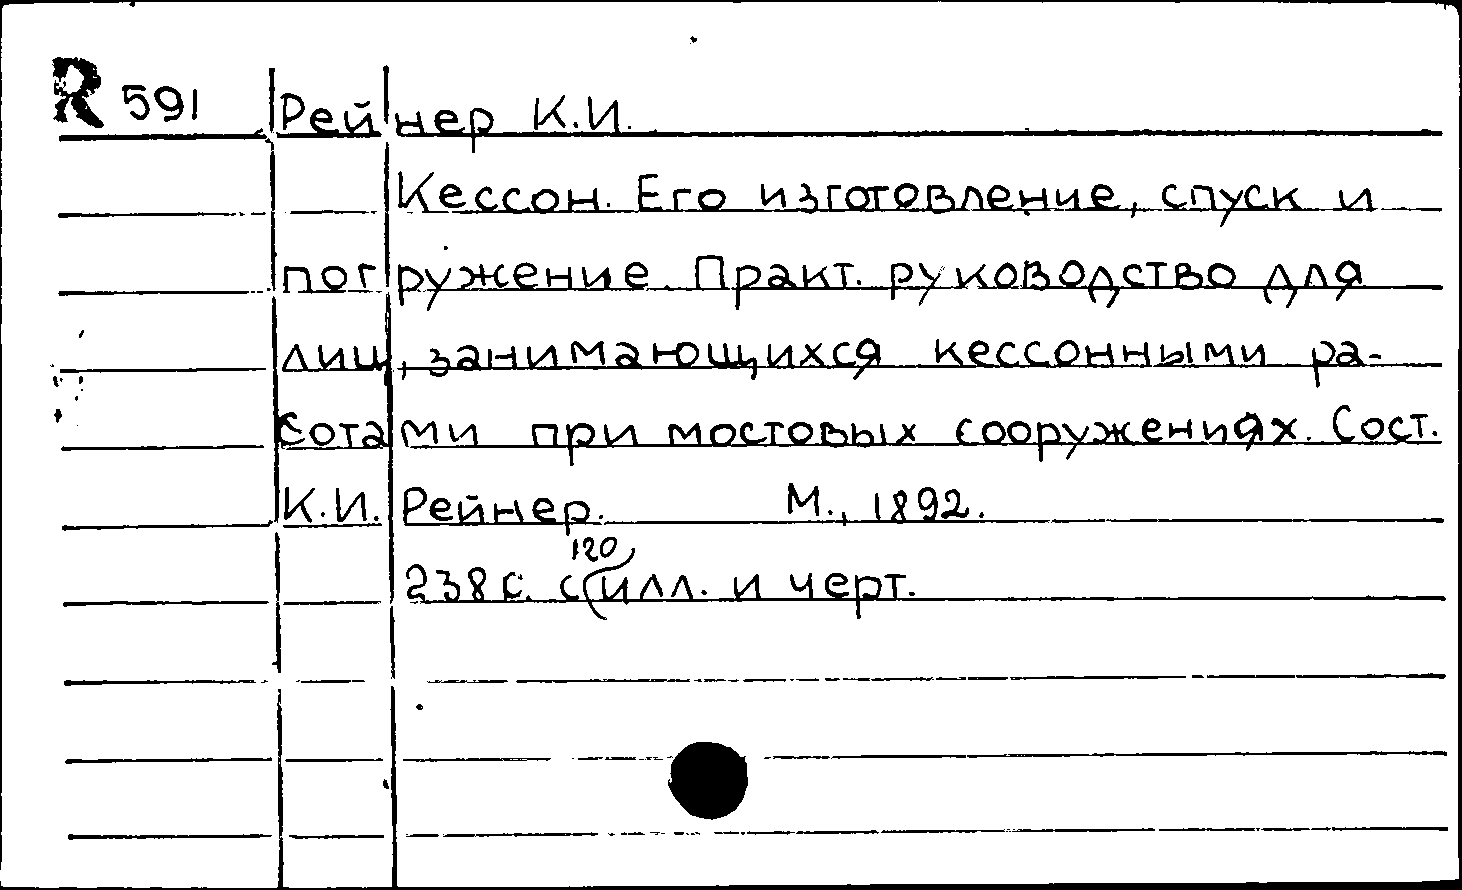 R 591 Рейнер К.И.
Кессон. Его изготовление, спуск и
погружение. Практ. руководство для
лиц, занимающихся кессонными ра-
ботами при мостовых сооружениях. Сост.
К.И. Рейнер. М., 1892.
120
238 с. с илл. и черт.